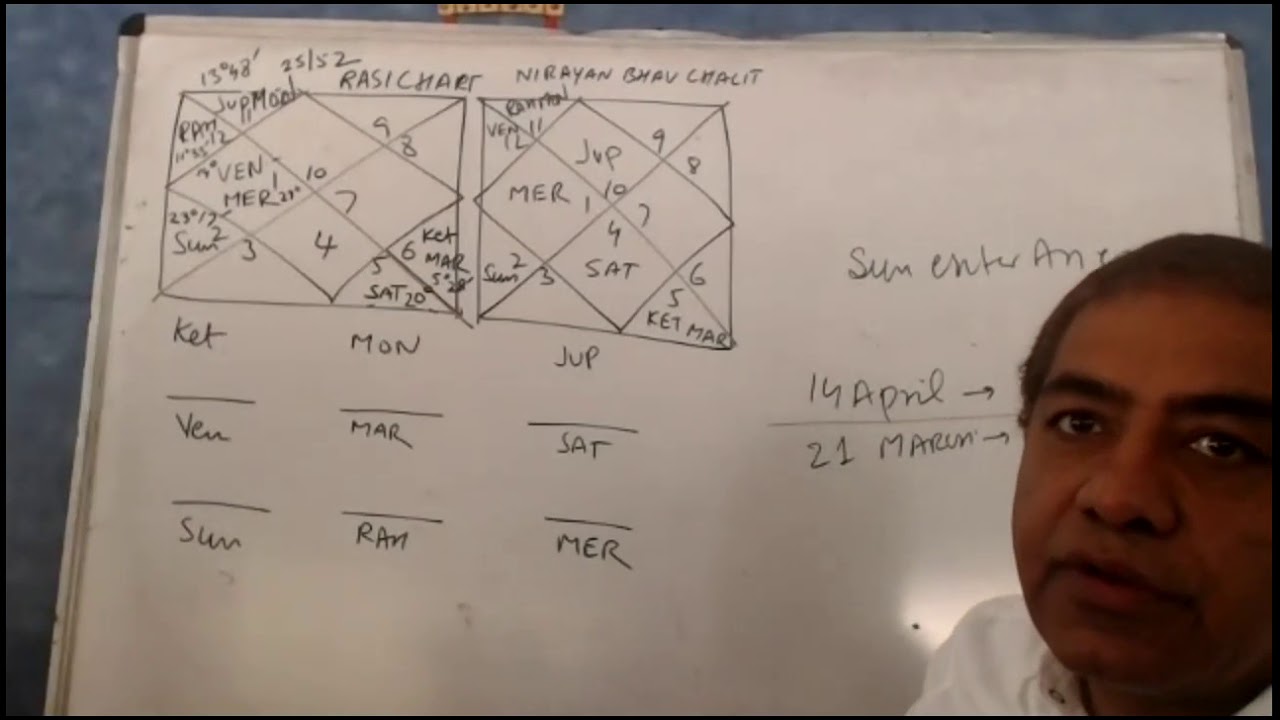 13°48' 25/52 RASI CHART
Jup Mon
11
RAH 12
11°55'
9
8
3° VEN 1
10
MER 23°
7
23°17'
Sun 2
3
4
6 Ket
MAR
5°28'
5
SAT 20°
NIRAYAN BHAV CHALIT
RAHMON
VEN 11
12
Jup
9
8
MER
1
10
7
4
Sun 2
3
SAT
6
5
KET MAR
Sun enter
14 April →
21 MARCH →
Ket MON JUP
Ven MAR SAT
Sun RAH MER